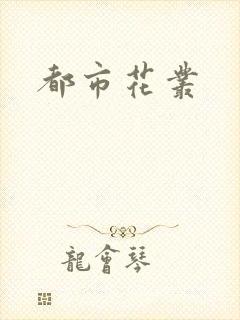 都市花叢
龍會琴